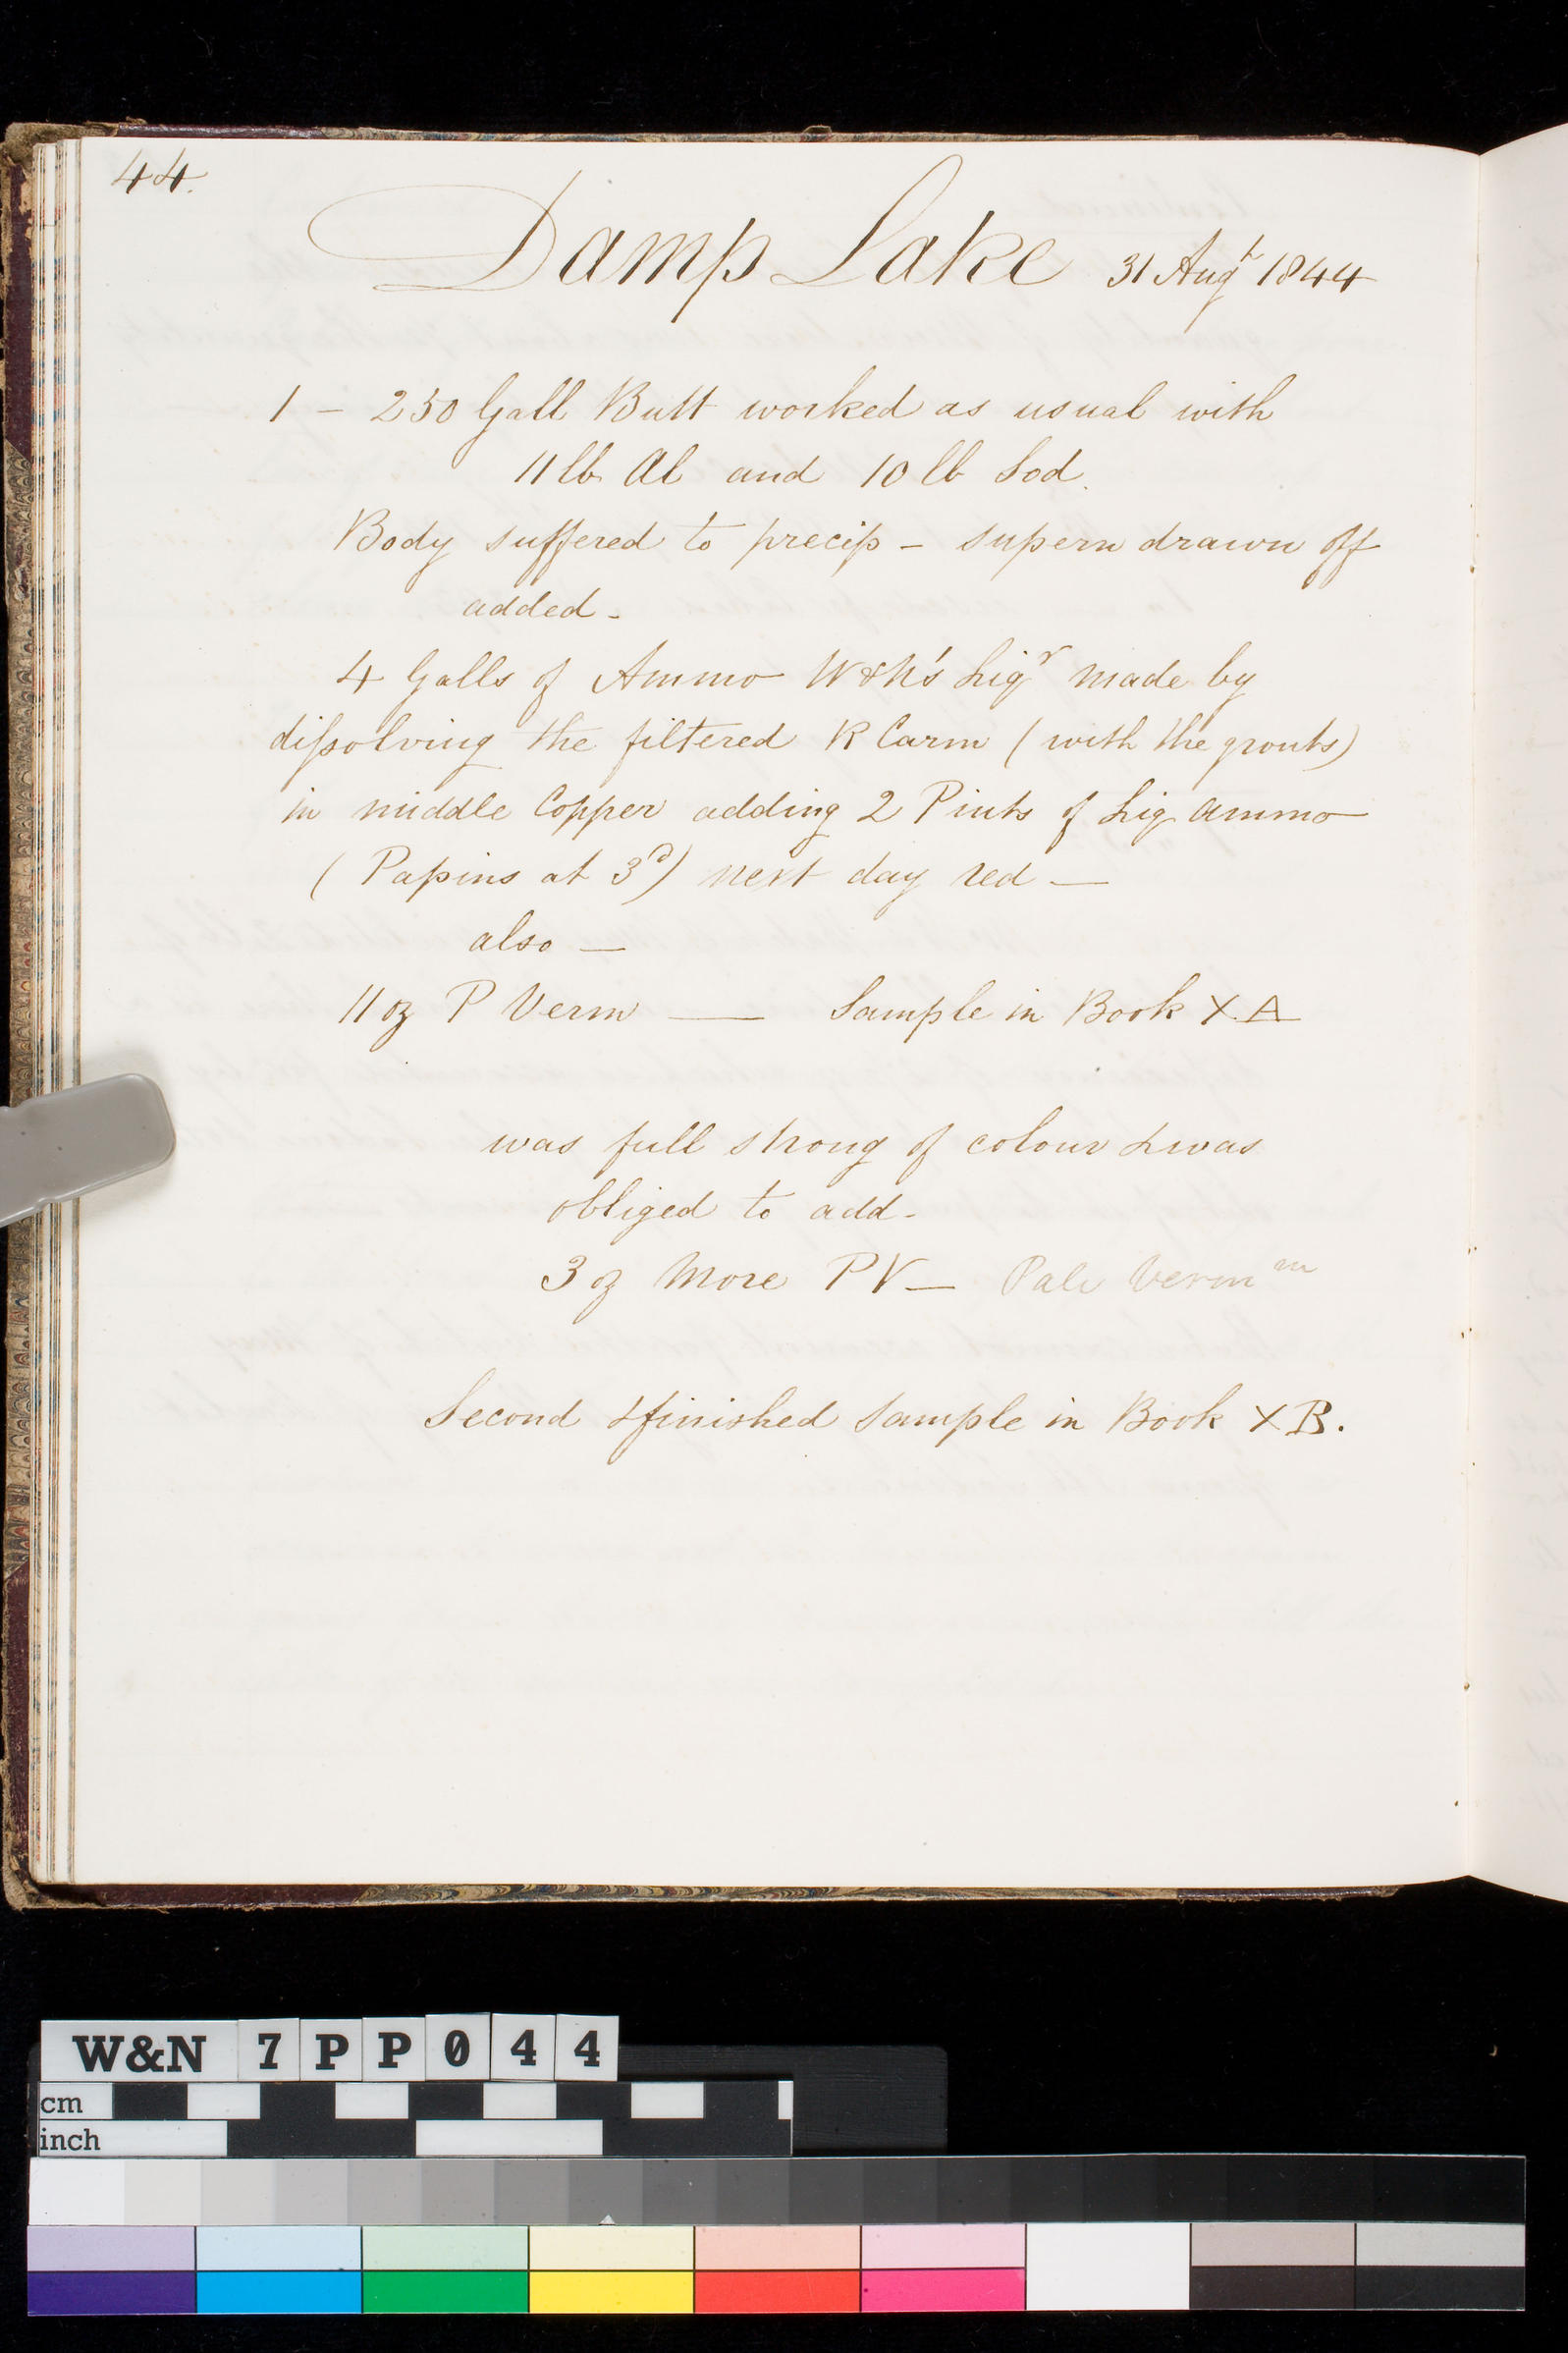 44.
Damp Lake 31 Augt 1844
1 - 250 Gall Butt worked as usual with
11 lb Al and 10 lb Sod.
Body suffered to precip - supern drawn off
added -
4 Galls of Ammo W&N's Liqr made by
dissolving the filtered R Carm (with the grouts)
in middle Copper adding 2 Pints of Liq Ammo
(Papins at 3D) next day red —
also —
11 oz P Verm — Sample in Book X A
was full strong of colour & was
obliged to add -
3 oz More PV — Pale Verm m
Second & finished Sample in Book X B.
W&N 7PP044
cm
inch